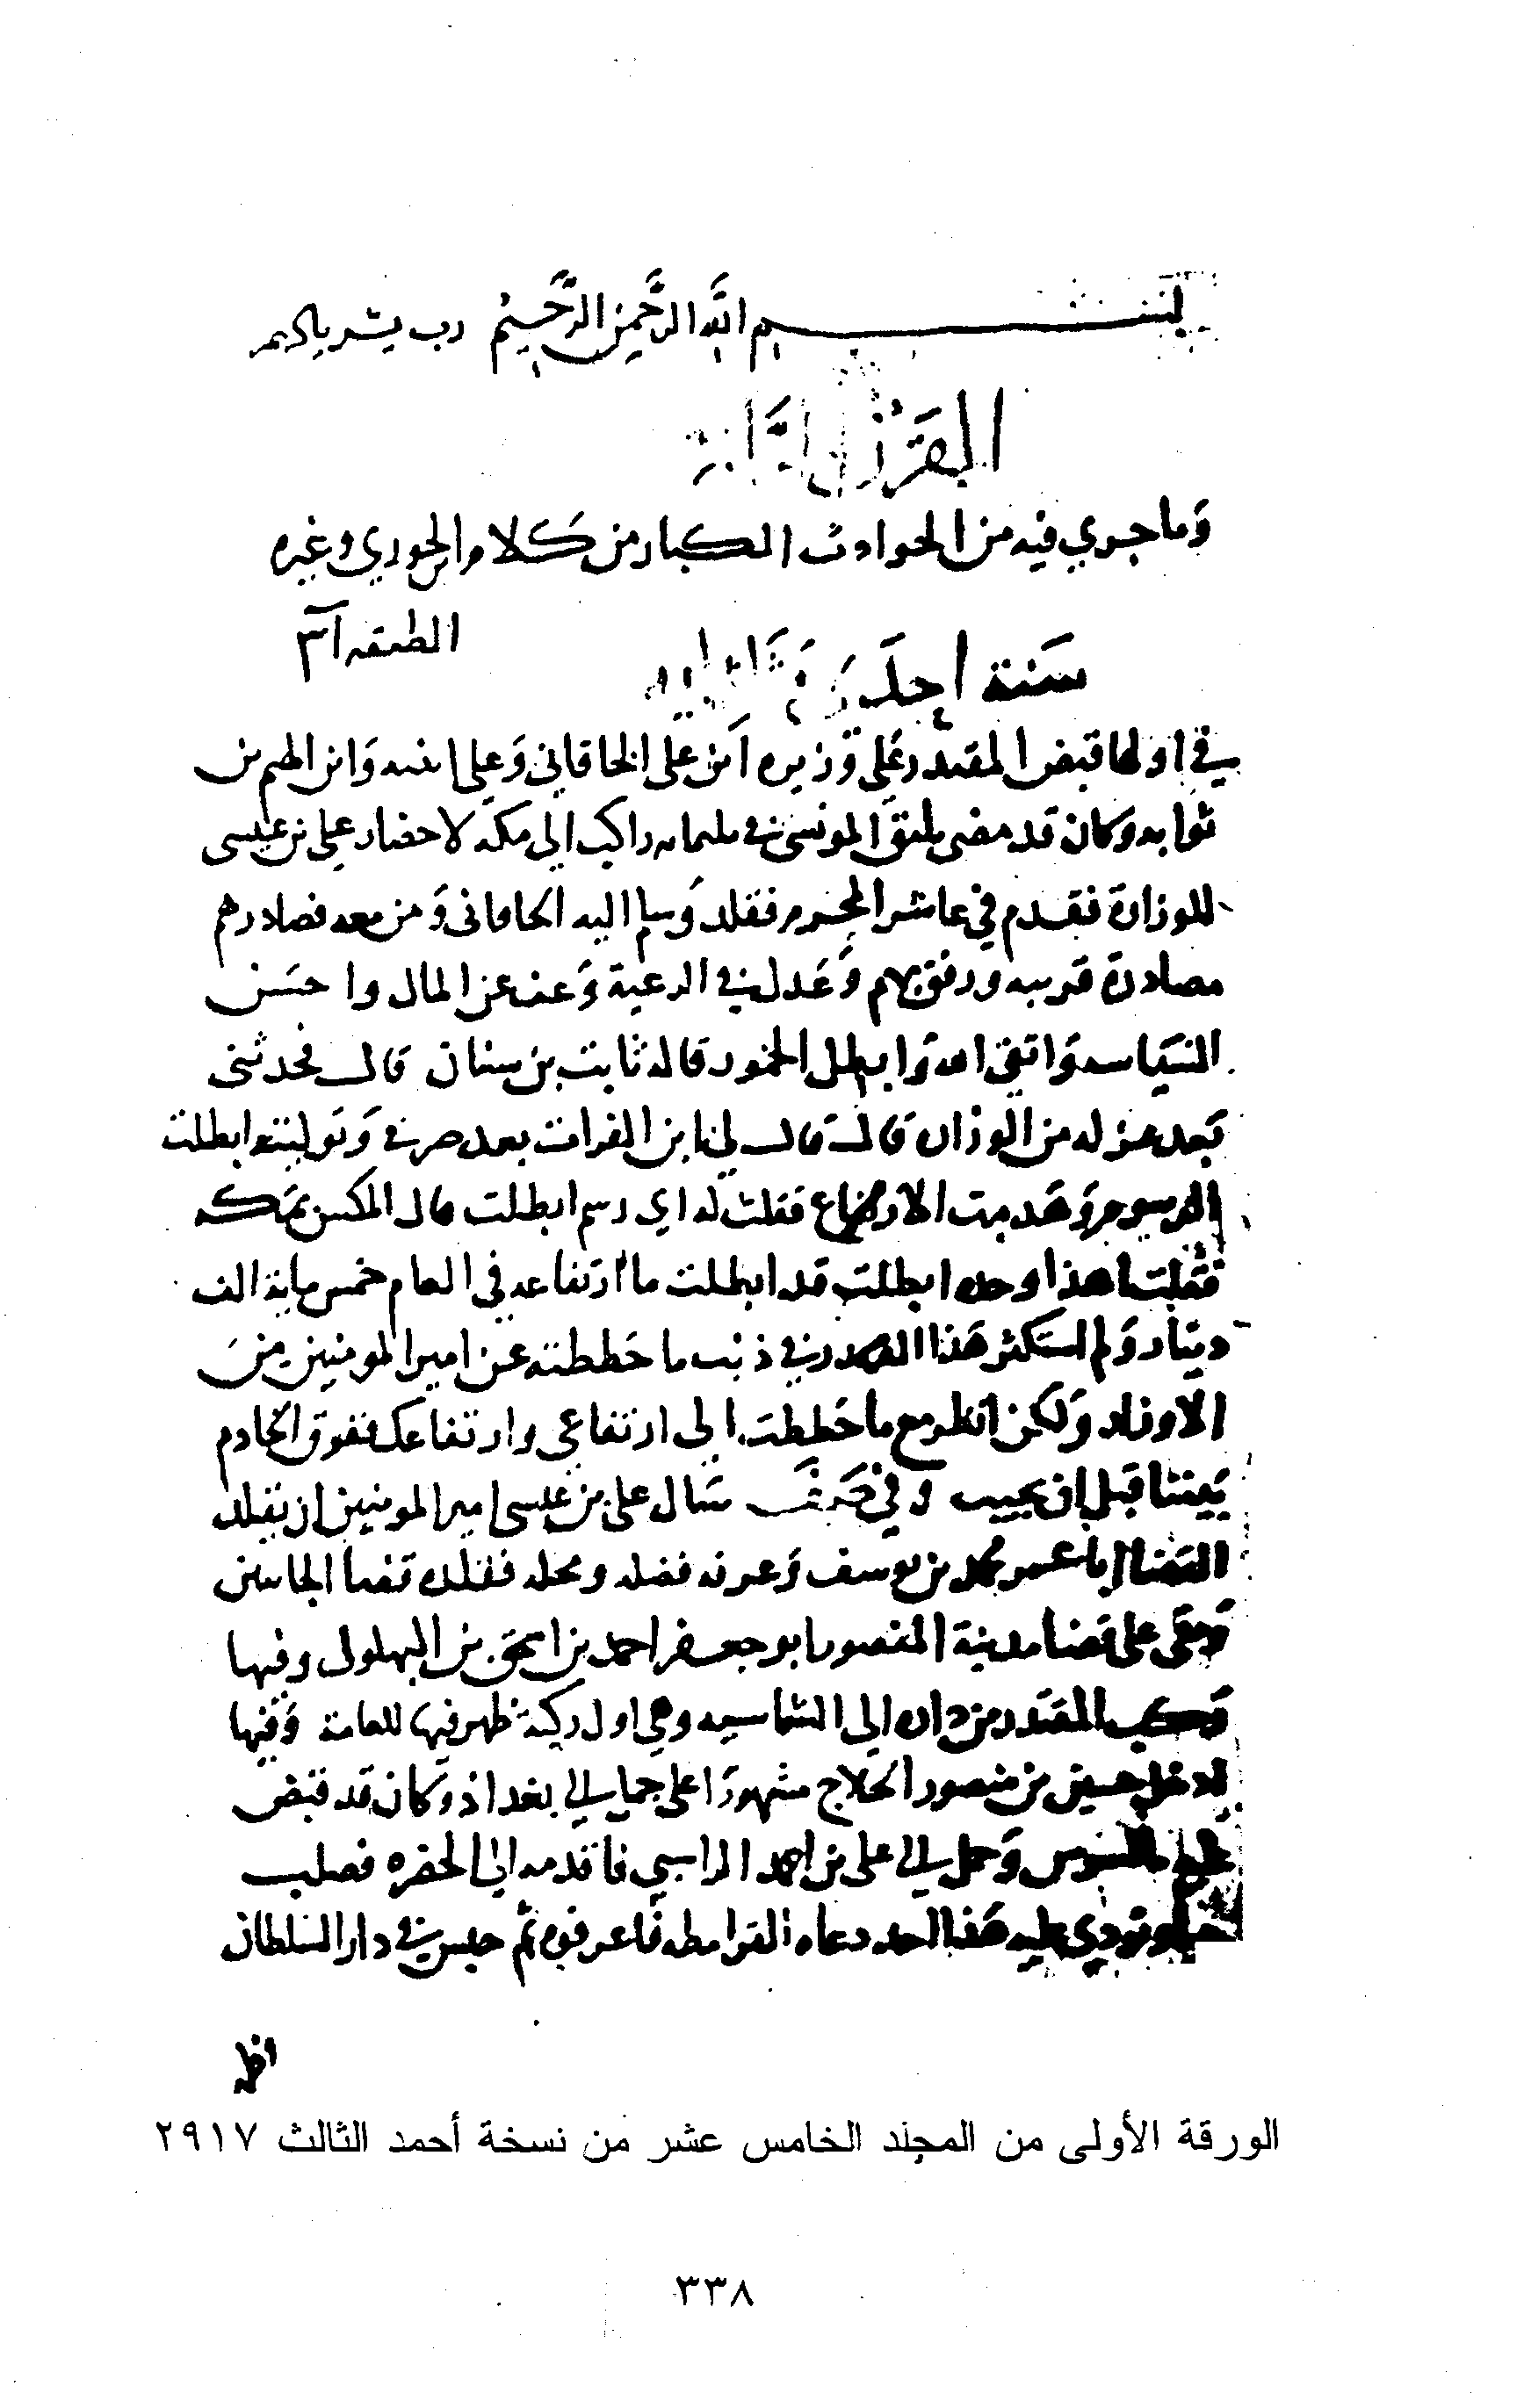 بسم الله الرحمن الرحيم رب يسر ياكريم
القرن الرابعة
وما جري فيه من الحوادث الكبار من كلام ابن الجوزي وغيره
الطبقه
سنة احدي وثلثمايه
في اولها قبض المقتدر علي وزيره ابن على الخاقاني وعلي ابنيه وابن الهيثم بن
ثوابه وكان قد مضى يلبق المونسي في راكب الي مكه لاحضار علي بن عيسى
للوزارة فقدم في عاشر المحرم فقلد وسلم اليه الخاقانى ومن معه فصادرهم
مصادرة قريبه ورفق بهم وعدل في الرعية وعف عن المال واحسن
السياسه واتقى الله وابطل الخمور قاله ثابت بن سنان قال فحدثنى
بعد عزله من الوزاره قال قال لي ابن الفرات بعد صرفي وتوليته ابطلت
الرسوم وهدمت الارتفاع فقلت له اي رسم ابطلت قال المكس بمكه
فقلت هذا وحده ابطلت قد ابطلت ما ارتفاعه في العام خمس ماية الف
دينار ولم استكثر هذا القدر في ذنب ما حططته عن امير المومنين من
الاوزار ولكن انظر مع ما حططت الي ارتفاعي وارتفاعك ففرق الخادم
بيننا قبل ان يجيب وفي صفر سال على بن عيسى امير المومنين ان يقلد
القضا ابا عمر محمد بن يوسف وعرفه فضله ومحله فقلده قضا الجانبين
وبقى على قضا مدينة المنصور ابو جعفر احمد بن اسحق بن البهلول وفيها
ركب المقتدر من داره الى الشماسيه وهي اول ركبة ظهر فيها للعامة وفيها
ادخل حسين بن منصور الحلاج مشهورا على جمل الى بغداذ وكان قد قبض
عليه بالسوس وحمل الى على بن احمد الراسبي فاقدمه الي الحضره فصلب
حيا ونودي عليه هذا احد دعاه القرامطه فاعرفوه ثم حبس في دار السلطان
الورقة الأولى من المجلد الخامس عشر من نسخة أحمد الثالث ٢٩١٧
٣٣٨